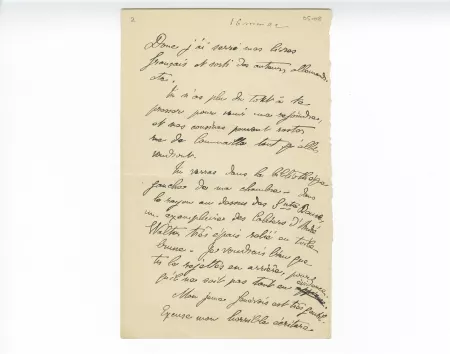 2
Donc j'ai serré mes livres
français et sorti des auteurs allemands
etc.
Tu n'as plus du tout à te
presser pour venir me rejoindre,
et mes cousines peuvent rester
rue de tant qu'elles
voudront.
Tu verras dans la bibliothèque
gauche de ma chambre – dans
le rayon au dessus des
un exemplaire des
très épais relié en toile
brune – Je voudrais bien que
tu les rejettes en arrière, pour
qu'il ne soit pas tout en
Mon jeune est très
Excuse mon horrible écriture.